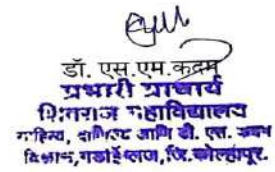 डॉ. एस.एम.कदम
प्रभारी प्राचार्य
शिवराज महाविद्यालय
आणि डी. एस. कदम
गडहिंग्लज, जि.कोल्हापूर.